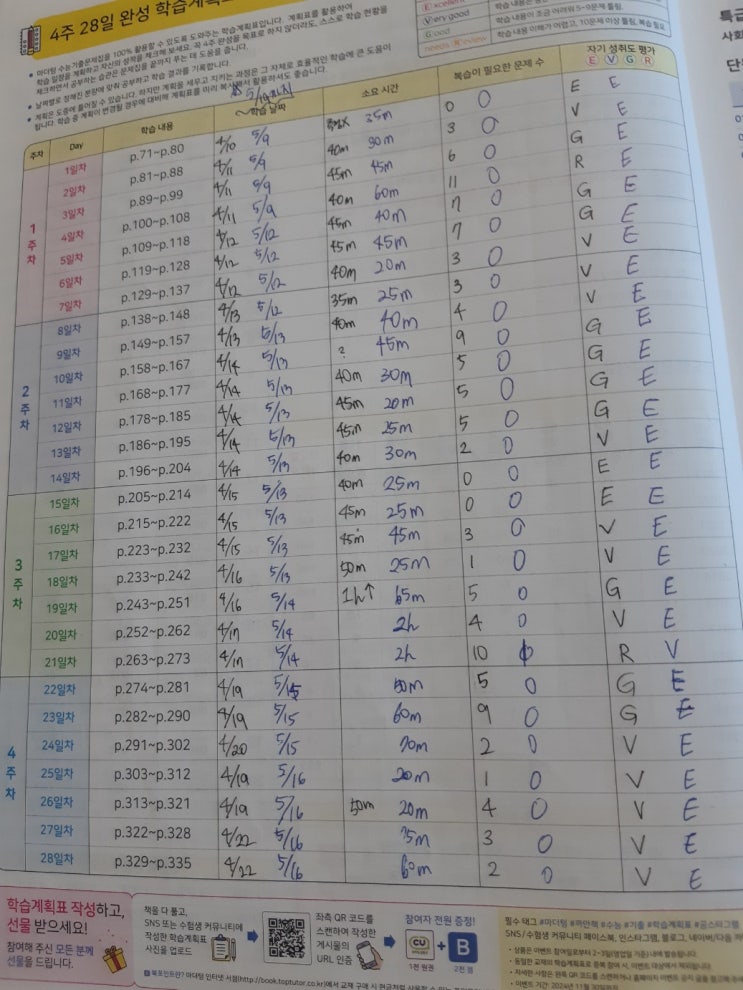 4주 28일 완성 학습계획표
마더텅 수능기출문제집을 100% 활용할 수 있도록 도와주는 학습계획표입니다. 계획표를 활용하여
학습 일정을 계획하고 자신의 성적을 체크해 보세요. 꼭 4주 완성을 목표로 하지 않더라도, 스스로 학습 현황을
체크하면서 공부하는 습관은 문제집을 끝까지 푸는 데 도움을 줍니다.
날짜별로 정해진 분량에 맞춰 공부하고 학습 결과를 기록합니다.
계획은 도중에 틀어질 수 있습니다. 하지만 계획을 세우고 지키는 과정은 그 자체로 효율적인 학습에 큰 도움이
됩니다. 학습 중 계획이 변경될 경우에 대비해 계획표를 미리 복사해서 활용하셔도 좋습니다.
Excellent
Very good 학습 내용이 조금 어려워 5~9문제 틀림.
Good
needs Review 학습 내용 이해가 어렵고, 10문제 이상 틀림, 복습 필요
특급
사회
주차 Day 학습 내용 학습 날짜 소요 시간 복습이 필요한 문제 수 자기 성취도 평가
E V G R
1주차
1일차 p.71~p.80 4/10 5/9 35m 0 0 E E
2일차 p.81~p.88 4/11 5/9 40m 30m 3 0 V E
3일차 p.89~p.99 4/11 5/9 45m 45m 6 0 G E
4일차 p.100~p.108 4/11 5/9 40m 60m 11 0 R E
5일차 p.109~p.118 4/12 5/12 45m 40m 7 0 G E
6일차 p.119~p.128 4/12 5/12 45m 45m 7 0 G E
7일차 p.129~p.137 4/12 5/12 40m 20m 3 0 V E
2주차
8일차 p.138~p.148 4/13 5/12 35m 25m 3 0 V E
9일차 p.149~p.157 4/13 5/13 40m 40m 4 0 V E
10일차 p.158~p.167 4/14 5/13 ? 45m 9 0 G E
11일차 p.168~p.177 4/14 5/13 40m 30m 5 0 G E
12일차 p.178~p.185 4/14 5/13 45m 20m 5 0 G E
13일차 p.186~p.195 4/14 5/13 45m 25m 5 0 G E
14일차 p.196~p.204 4/14 5/13 40m 30m 2 0 V E
3주차
15일차 p.205~p.214 4/15 5/13 40m 25m 0 0 E E
16일차 p.215~p.222 4/15 5/13 45m 25m 0 0 E E
17일차 p.223~p.232 4/15 5/13 45m 45m 3 0 V E
18일차 p.233~p.242 4/16 5/13 50m 25m 1 0 V E
19일차 p.243~p.251 4/16 5/14 1h↑ 65m 5 0 G E
20일차 p.252~p.262 4/17 5/14 2h 4 0 V E
21일차 p.263~p.273 4/17 5/14 2h 10 R V
4주차
22일차 p.274~p.281 4/19 5/15 50m 5 0 G E
23일차 p.282~p.290 4/19 5/15 60m 9 0 G E
24일차 p.291~p.302 4/20 5/15 70m 2 0 V E
25일차 p.303~p.312 4/19 5/16 20m 1 0 V E
26일차 p.313~p.321 4/19 5/16 50m 20m 4 0 V E
27일차 p.322~p.328 4/22 5/16 35m 3 0 V E
28일차 p.329~p.335 4/22 5/16 60m 2 0 V E
학습계획표 작성하고,
선물 받으세요!
참여해 주신 모든 분께
선물을 드립니다.
책을 다 풀고,
SNS 또는 수험생 커뮤니티에
작성한 학습계획표
사진을 업로드
좌측 QR 코드를
스캔하여 작성한
게시물의
URL 인증
참여자 전원 증정!
CU + B
1천 원권 2천 점
필수 태그 #마더텅 #까만책 #수능 #기출 #학습계획표 #공스타그램
SNS/수험생 커뮤니티 페이스북, 인스타그램, 블로그, 네이버/다음 카페